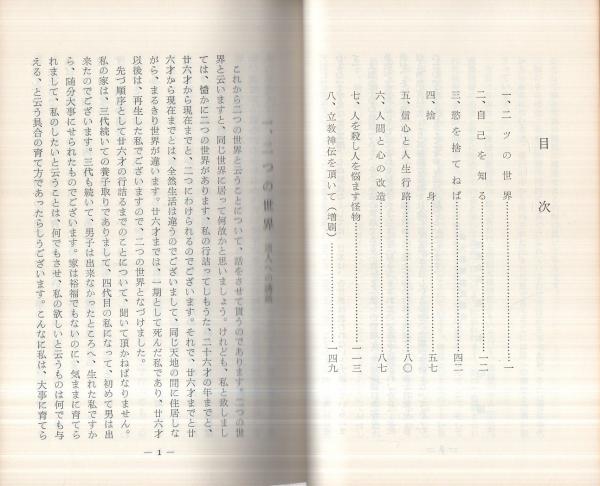 目次
一、二ツの世界……………………一
二、自己を知る……………………一二
三、慾を捨てねば…………………四二
四、捨身……………………………五七
五、信心と人生行路………………八〇
六、人間と心の改造………………八七
七、人を殺し人を悩ます怪物……一一三
八、立教神伝を頂いて(増刷)……一四九
一、二つの世界
これから二つの世界と云うことについて、話をさせて貰うのであります。二つの世
界と云いますと、同じ世界に居って何故かと思いましょう。けれども、私と致しまし
ては、慥かに二つの世界があります、私の行詰ってしもうた、二十六才の年までと、
廿六才から現在までと、二つにわけられるのでございます。それで、廿六才までと廿
六才から現在までとは、全然生活は違うのでございまして、同じ天地の間に住居しな
がら、まるきり世界が違います。廿六才までは、一期として死んだ私であり、廿六才
以後は、再生した私でございますので、二つの世界となづけました。
先づ順序として廿六才の行詰るまでのことについて、聞いて頂かねばなりません。
私の家は、三代続いての養子取りでありまして、四代目の私になって、初めて男は出
来たのでございます。三代も続いて、男子は出来なかったところへ、生れた私ですか
ら、随分大事にせられたものでございます。家は裕福でもないのに、気ままに育てら
れまして、私のしたいと云うことは、何でもさせ、私の欲しいと云うものは何でも与
える、と云う具合の育て方であったらしうございます。こんなに私は、大事に育てら
— 1 —